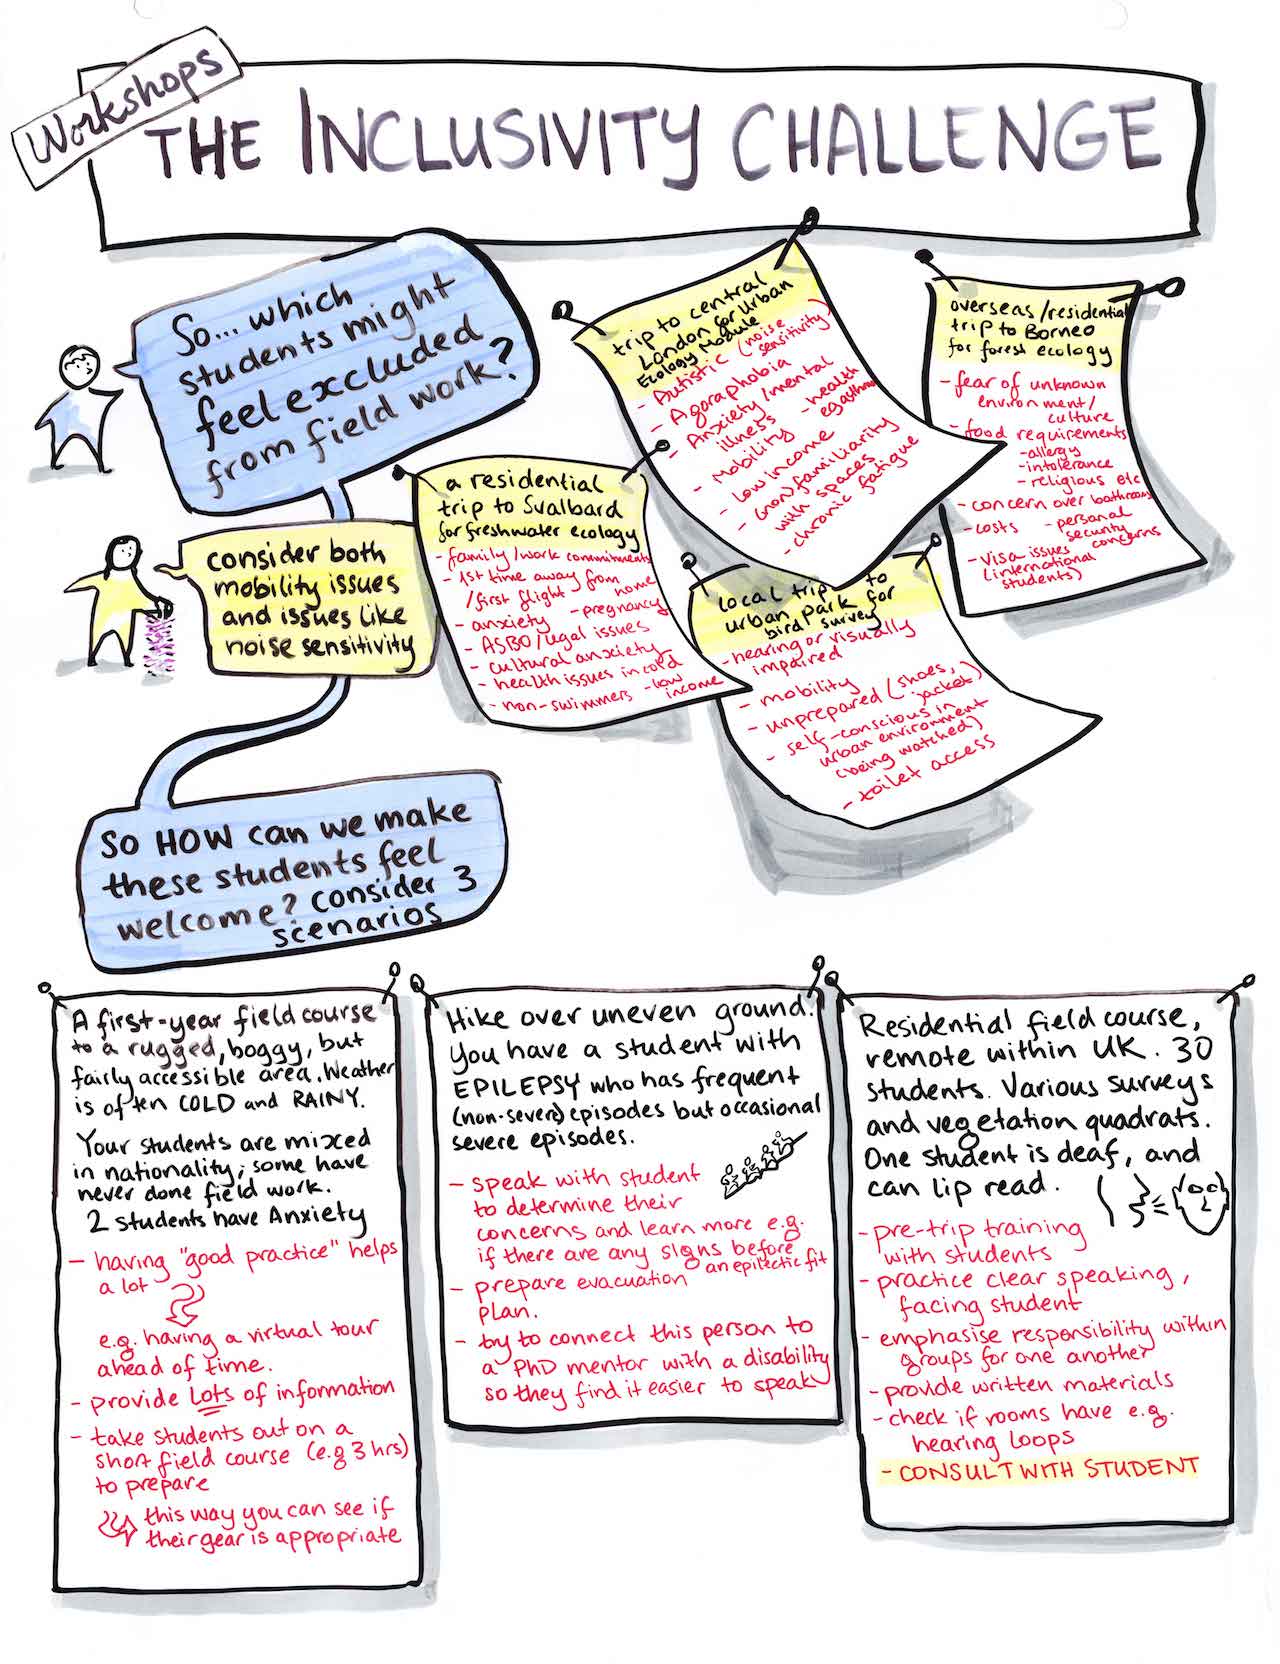 Workshops
THE INCLUSIVITY CHALLENGE
So... which
students might
feel excluded
from field work?
consider both
mobility issues
and issues like
noise sensitivity
a residential
trip to Svalbard
for freshwater ecology
- family/work commitments
- 1st time away from
home
/first flight
- pregnancy
- anxiety
- ASBO/legal issues
- cultural anxiety
- health issues in cold
- non-swimmers - low
income
trip to central
London for Urban
Ecology Module
- Autistic (noise
sensitivity)
- Agoraphobia
- Anxiety/mental
illness - health
- Mobility
- low income
- (non)familiarity
with spaces
- chronic fatigue
overseas/residential
trip to Borneo
for forest ecology
- fear of unknown
environment/
culture
- food requirements
- allergy
- intolerance
- religious etc
- concern over bathrooms
- costs - personal
security
concerns
- visa issues
(international
students)
local trip to
urban park for
bird survey
- hearing or visually
impaired
- mobility
- unprepared (shoes,
jacket)
- self-conscious in
urban environment
(being watched)
- toilet access
So HOW can we make
these students feel
welcome? consider 3
scenarios
A first-year field course
to a rugged, boggy, but
fairly accessible area. Weather
is often COLD and RAINY.
Your students are mixed
in nationality; some have
never done field work.
2 students have Anxiety
- having "good practice" helps
a lot
e.g. having a virtual tour
ahead of time.
- provide LOTS of information
- take students out on a
short field course (e.g 3 hrs)
to prepare
this way you can see if
their gear is appropriate
Hike over uneven ground.
You have a student with
EPILEPSY who has frequent
(non-severe) episodes but occasional
severe episodes.
- speak with student
to determine their
concerns and learn more e.g.
if there are any signs before
an epileptic fit
- prepare evacuation
plan.
- try to connect this person to
a PhD mentor with a disability
so they find it easier to speak
Residential field course,
remote within UK. 30
students. Various surveys
and vegetation quadrats.
One student is deaf, and
can lip read.
- pre-trip training
with students
- practice clear speaking,
facing student
- emphasise responsibility within
groups for one another
- provide written materials
- check if rooms have e.g.
hearing loops
- CONSULT WITH STUDENT